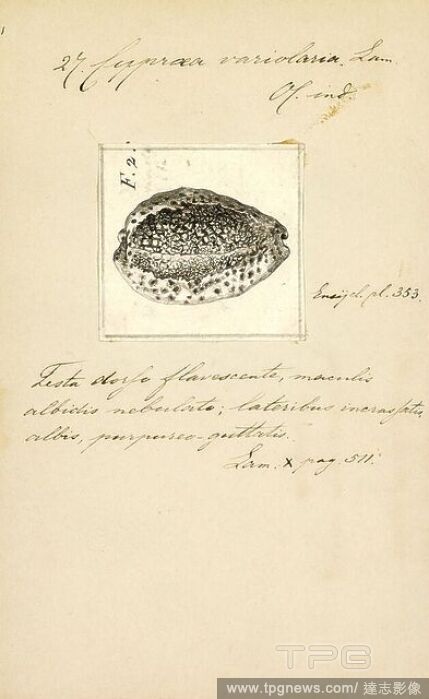 27. Cypræa variolaria. Lam.
Oc. ind.
F. 2.
Encycl. pl. 353.
Testa dorso flavescente, maculis
albidis nebulato; lateribus incrassatis
albis, purpureo-guttatis.
Lam. x pag. 511.
TPG
www.tpgnews.com / 達志影像